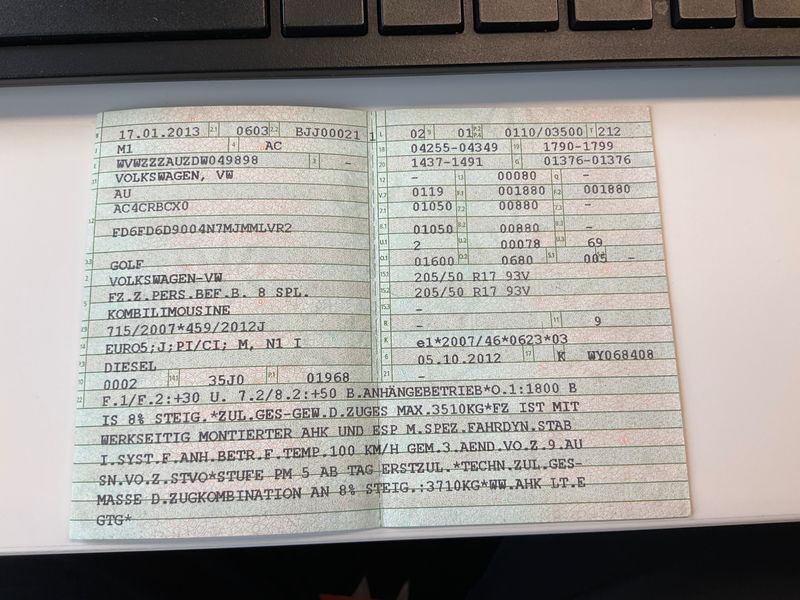 B 17.01.2013 2.1 0603 2.2 BJJ00021 1
J M1 4 AC
E WVWZZZAUZDW049898 3 -
D.1 VOLKSWAGEN, VW
AU
D.2 AC4CRBCX0
FD6FD6D9004N7MJMMLVR2
D.3 GOLF
2 VOLKSWAGEN-VW
5 FZ.Z.PERS.BEF.B. 8 SPL.
KOMBILIMOUSINE
V.9 715/2007*459/2012J
14 EURO5;J;PI/CI; M, N1 I
P.3 DIESEL
10 0002 14.1 35J0 P.1 01968
L 02 9 01 P.2/P.4 0110/03500 T 212
18 04255-04349 19 1790-1799
20 1437-1491 G 01376-01376
12 - 13 00080 Q -
V.7 0119 F.1 001880 F.2 001880
7.1 01050 7.2 00880 7.3 -
8.1 01050 8.2 00880 8.3 -
U.1 2 U.2 00078 U.3 69
O.1 01600 O.2 0680 S.1 005 S.2 -
15.1 205/50 R17 93V
15.2 205/50 R17 93V
15.3 -
R - 11 9
K e1*2007/46*0623*03
6 05.10.2012 17 K WY068408
21 -
22 F.1/F.2:+30 U. 7.2/8.2:+50 B.ANHÄNGEBETRIEB*O.1:1800 B
IS 8% STEIG.*ZUL.GES-GEW.D.ZUGES MAX.3510KG*FZ IST MIT
WERKSEITIG MONTIERTER AHK UND ESP M.SPEZ.FAHRDYN.STAB
I.SYST.F.ANH.BETR.F.TEMP.100 KM/H GEM.3.AEND.VO.Z.9.AU
SN.VO.Z.STVO*STUFE PM 5 AB TAG ERSTZUL.*TECHN.ZUL.GES-
MASSE D.ZUGKOMBINATION AN 8% STEIG.:3710KG*WW.AHK LT.E
GTG*